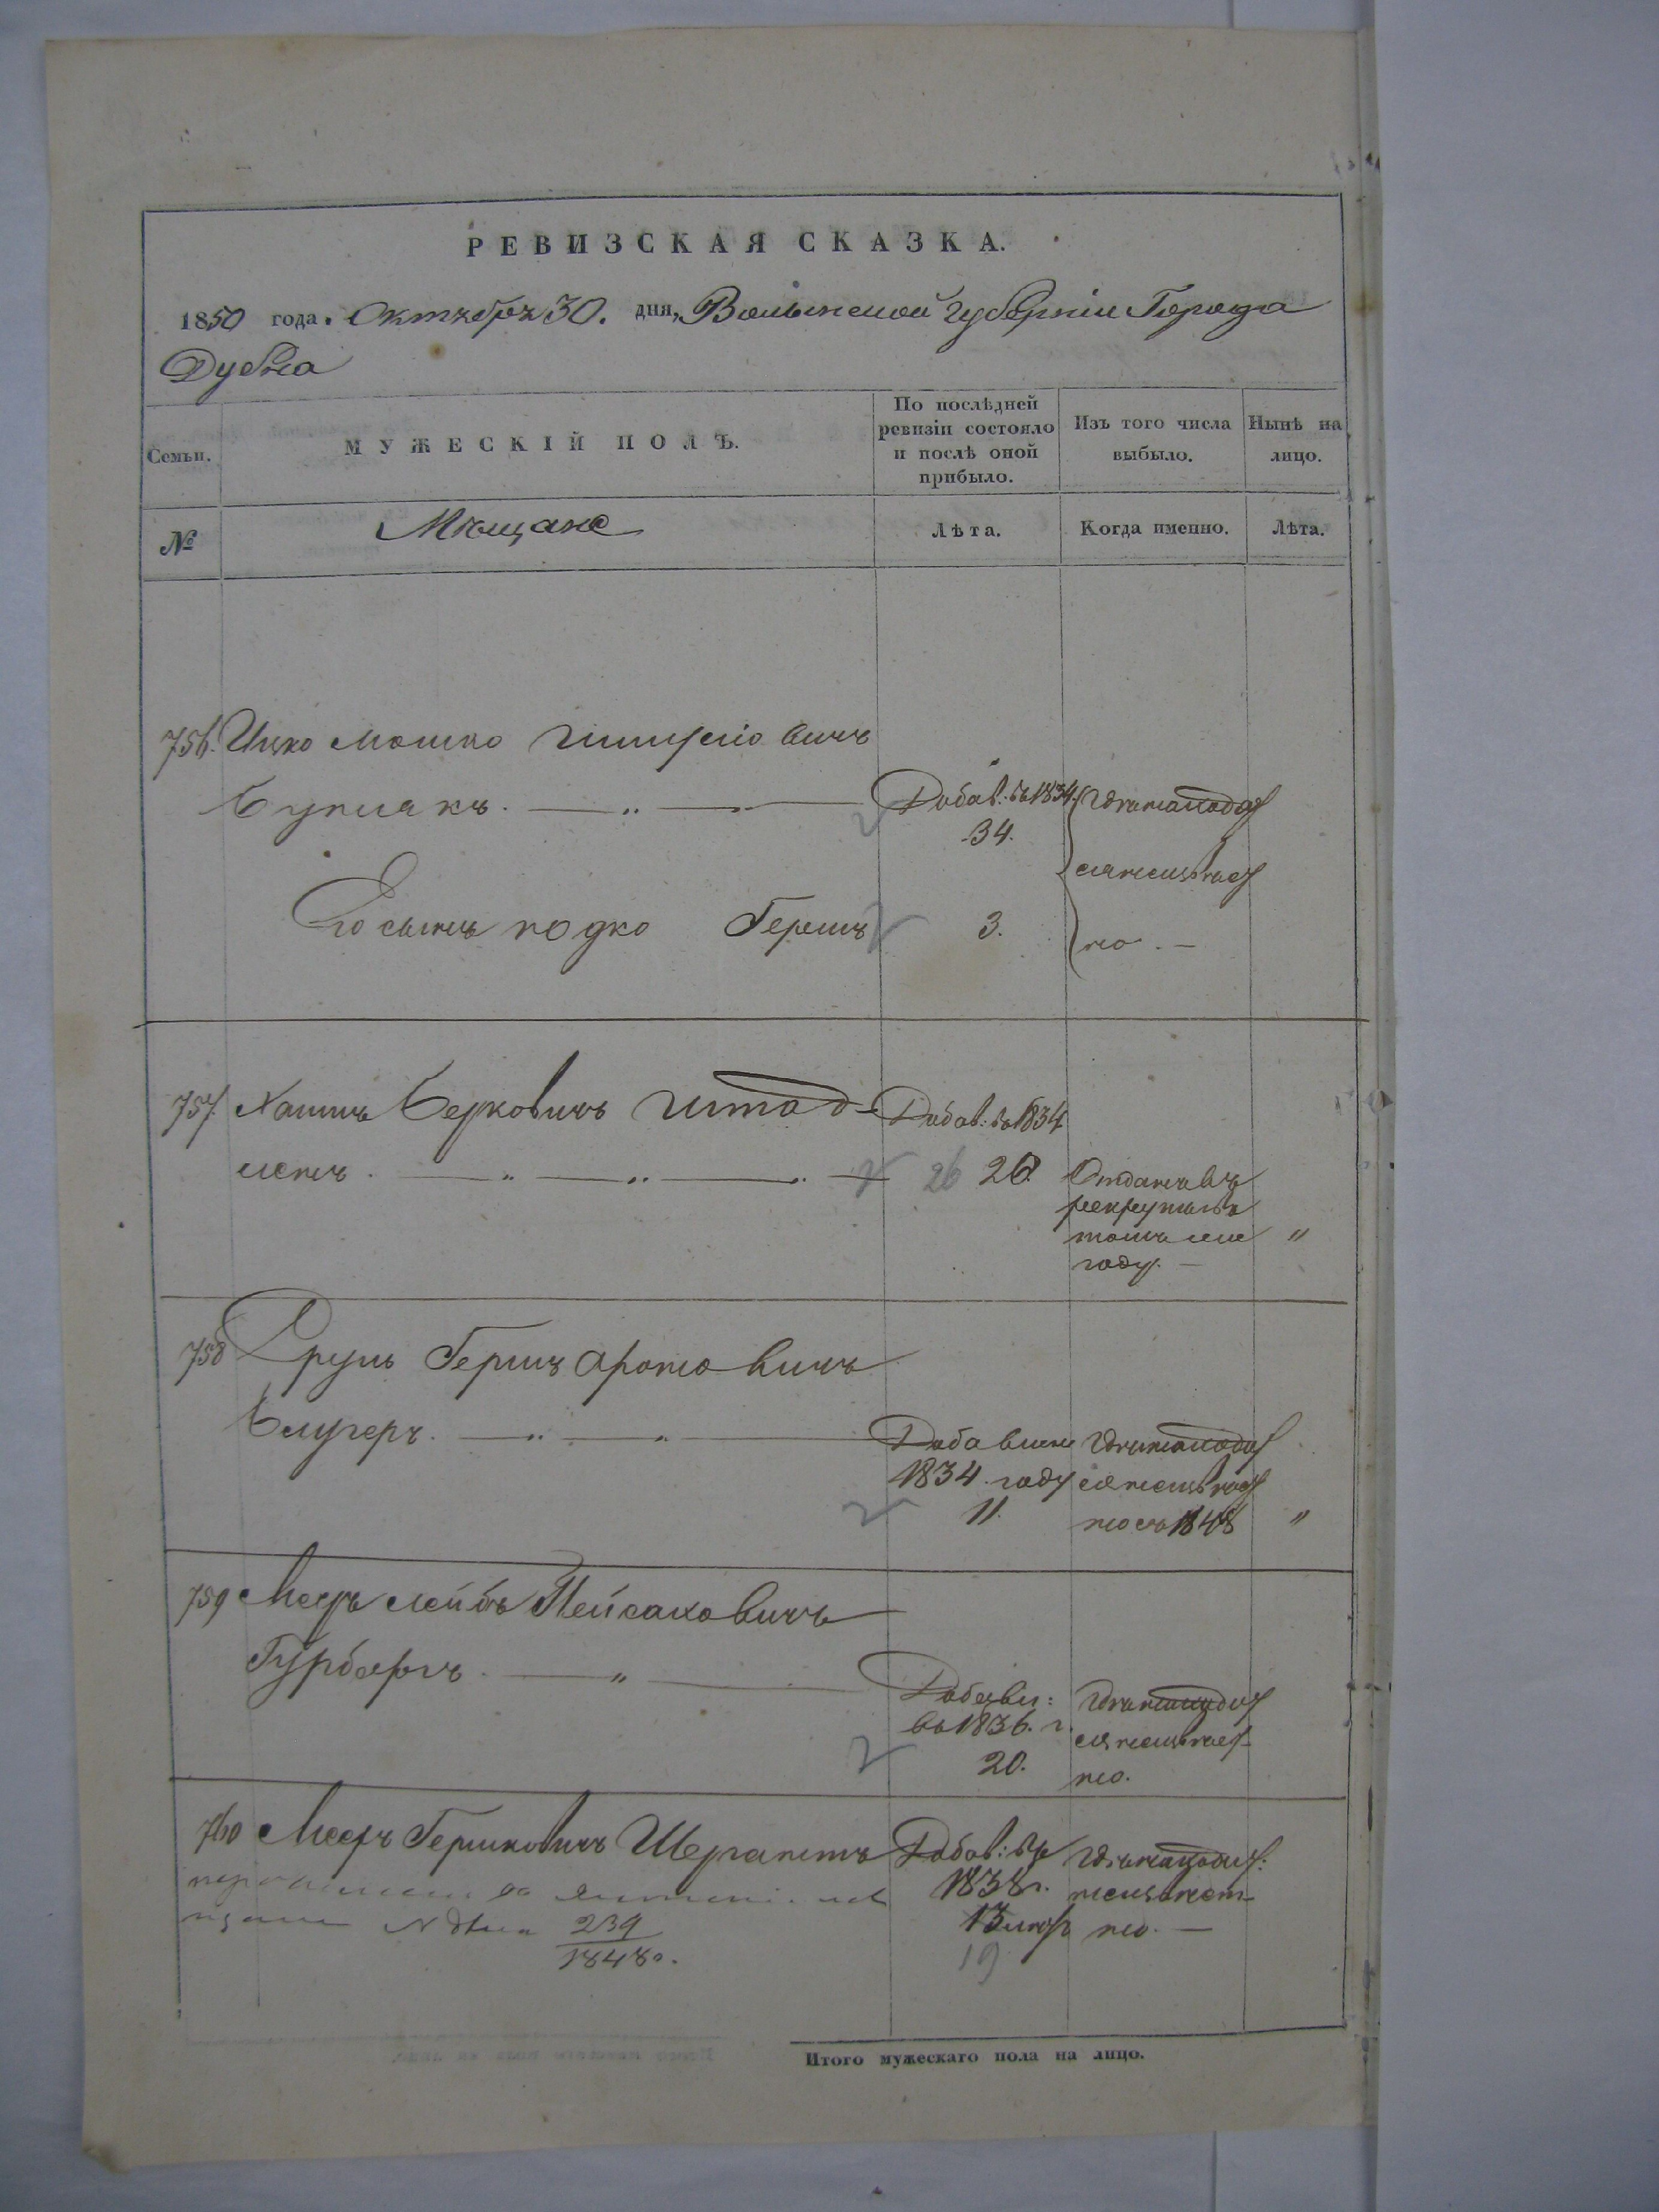 РЕВИЗСКАЯ СКАЗКА.
1850 года. Октября 30. дня, Волынской Губерніи Города
Дубна
Семьи.
МУЖЕСКІЙ ПОЛЪ.
По послѣдней
ревизіи состояло
и послѣ оной
прибыло.
Изъ того числа
выбыло.
Нынѣ на
лицо.
№
Мѣщане
Лѣта.
Когда именно.
Лѣта.
756. Ицко Мошко
Добав: въ 1834.
34.
неизвѣст
Его сынъ Годко Гершъ
3.
но. —
757. Хаимъ Берковичъ Штад-
Добав: въ 1834
26 26
Отданъ въ
рекруты въ
томъ же "
году. —
758 Сруль Гершъ Ароновичъ
Блугеръ.
Добавлен
1834 году
неизвѣст
11. но съ 1848 "
759 Мееръ Лейбъ Пейсаховичъ
Гурбергъ
Добавл:
въ 1836. г.
неизвѣст
20. но.
760 Мееръ Гершковичъ
Добав: въ
1838 г.
неизвѣст
13 но. —
N 239
1848 г.
19
Итого мужескаго пола на лицо.